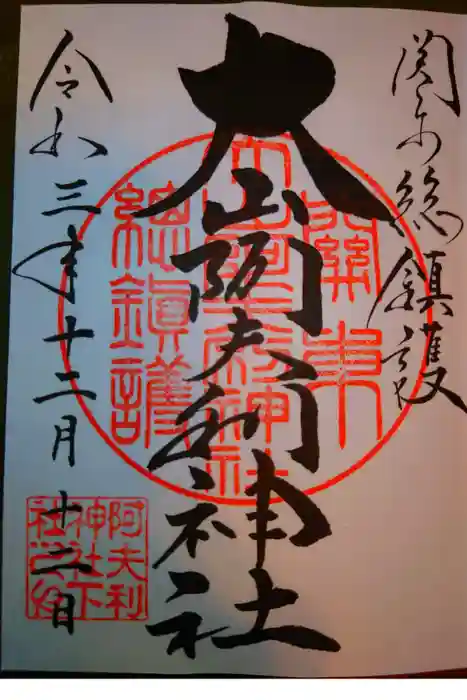 関東総鎮護
大山阿夫利神社
令和三年十二月十二日
關東
大山阿夫利神社
總鎮護
阿夫利
神社下
社之印